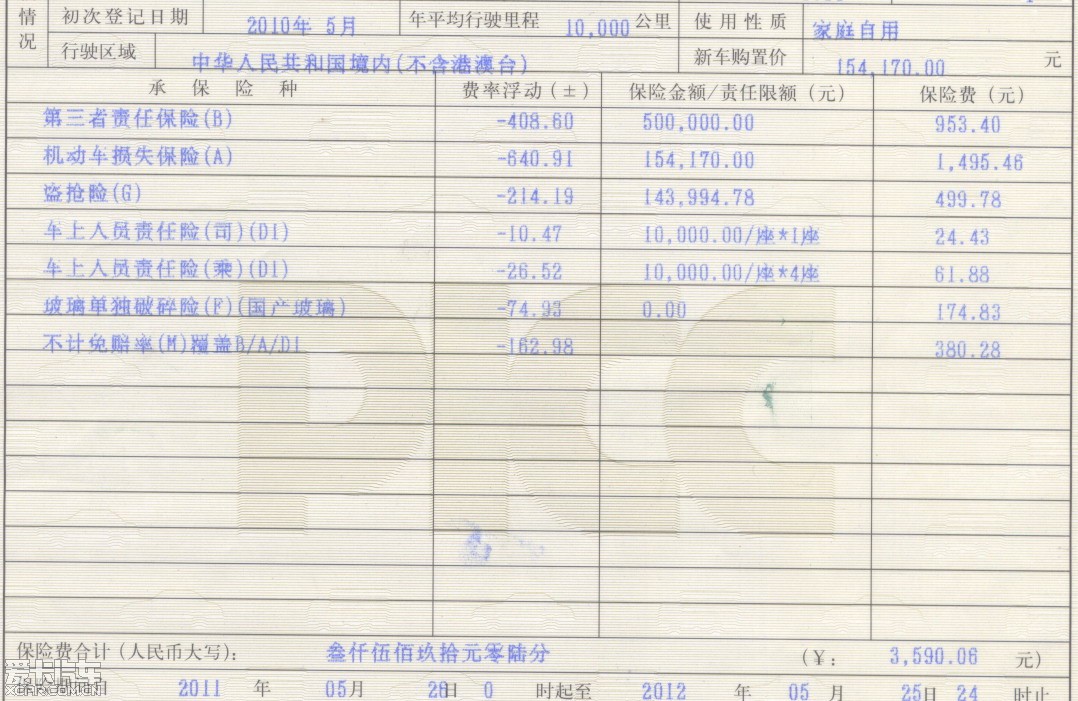 情况
初次登记日期 2010年 5月 年平均行驶里程 10,000 公里 使用性质 家庭自用
行驶区域 中华人民共和国境内(不含港澳台) 新车购置价 154,170.00 元
承保险种 费率浮动(±) 保险金额/责任限额(元) 保险费(元)
第三者责任保险(B) -408.60 500,000.00 953.40
机动车损失保险(A) -640.91 154,170.00 1,495.46
盗抢险(G) -214.19 143,994.78 499.78
车上人员责任险(司)(D1) -10.47 10,000.00/座*1座 24.43
车上人员责任险(乘)(D1) -26.52 10,000.00/座*4座 61.88
玻璃单独破碎险(F)(国产玻璃) -74.93 0.00 174.83
不计免赔率(M)覆盖B/A/D1 -162.98 380.28
保险费合计(人民币大写): 叁仟伍佰玖拾元零陆分 (¥: 3,590.06 元)
2011 年 05月 26日 0 时起至 2012 年 05 月 25日 24 时止
爱卡汽车
XCAR.COM.CN